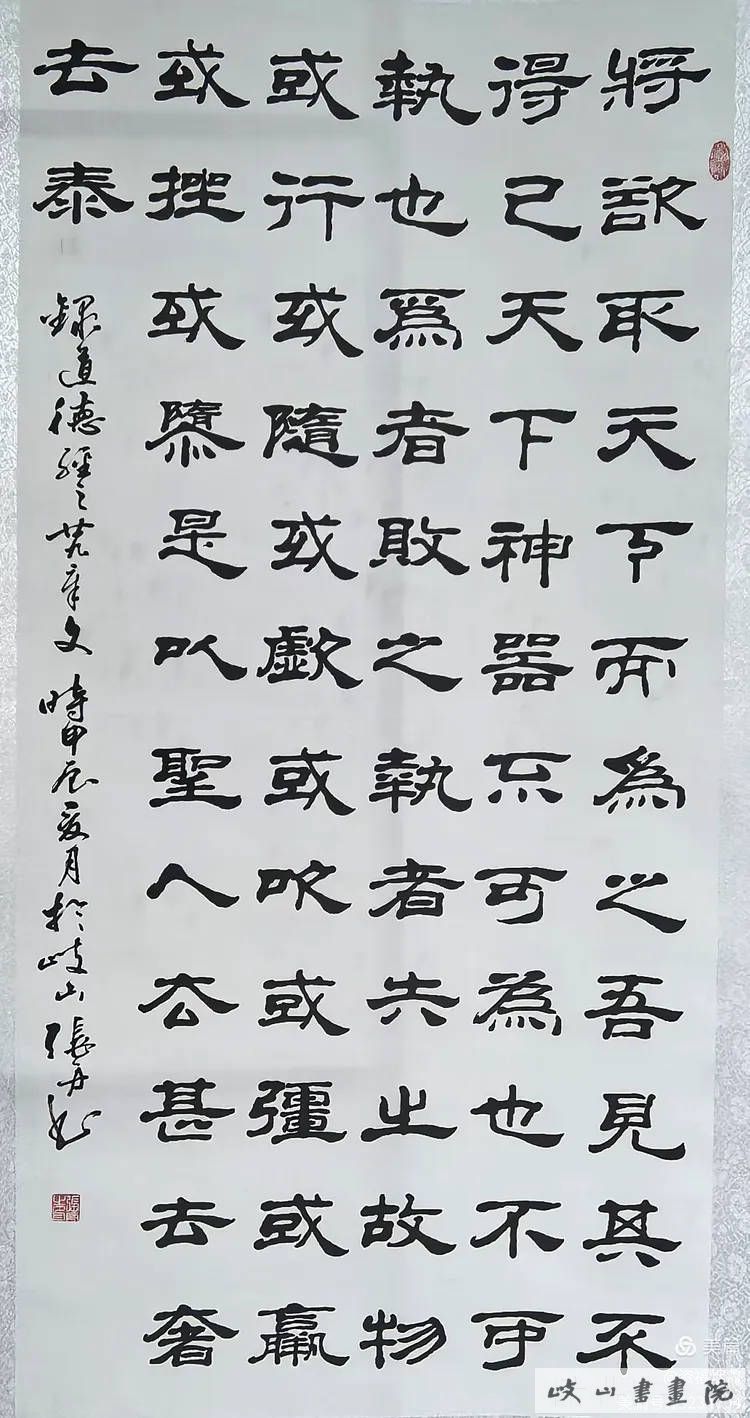 將欲取天下而為之吾見其不
得已天下神器不可為也不可
執也爲者敗之執者失之故物
或行或隨或歔或吹或彊或羸
或挫或隳是以聖人去甚去奢
去泰
錄道德經之廿九章文 時甲辰夏月於岐山張丹书
美篇
岐山書畫院